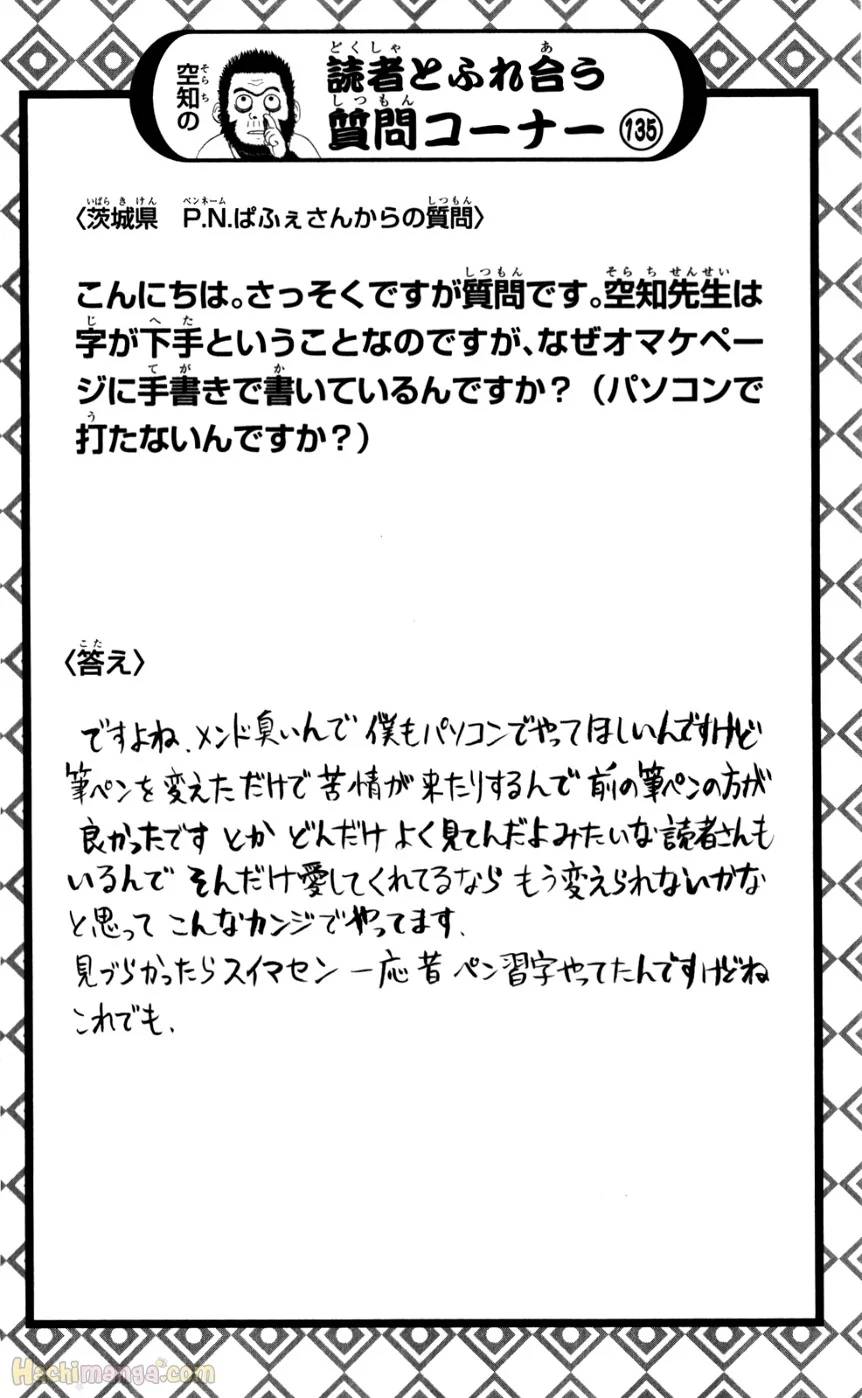 空知の
読者とふれ合う
質問コーナー 135
〈茨城県 P.N.ぱふぇさんからの質問〉
こんにちは。さっそくですが質問です。空知先生は
字が下手ということなのですが、なぜオマケペー
ジに手書きで書いているんですか？（パソコンで
打たないんですか？）
〈答え〉
ですよね、メンド臭いんで 僕もパソコンでやってほしいんですけど
筆ペンを変えただけで苦情が来たりするんで 前の筆ペンの方が
良かったです とか どんだけよく見てんだよみたいな読者さんも
いるんで そんだけ愛してくれてるなら もう変えられないかな
と思って こんなカンジでやってます、
見づらかったらスイマセン 一応昔 ペン習字やってたんですけどね
これでも、
Hachimanga.com